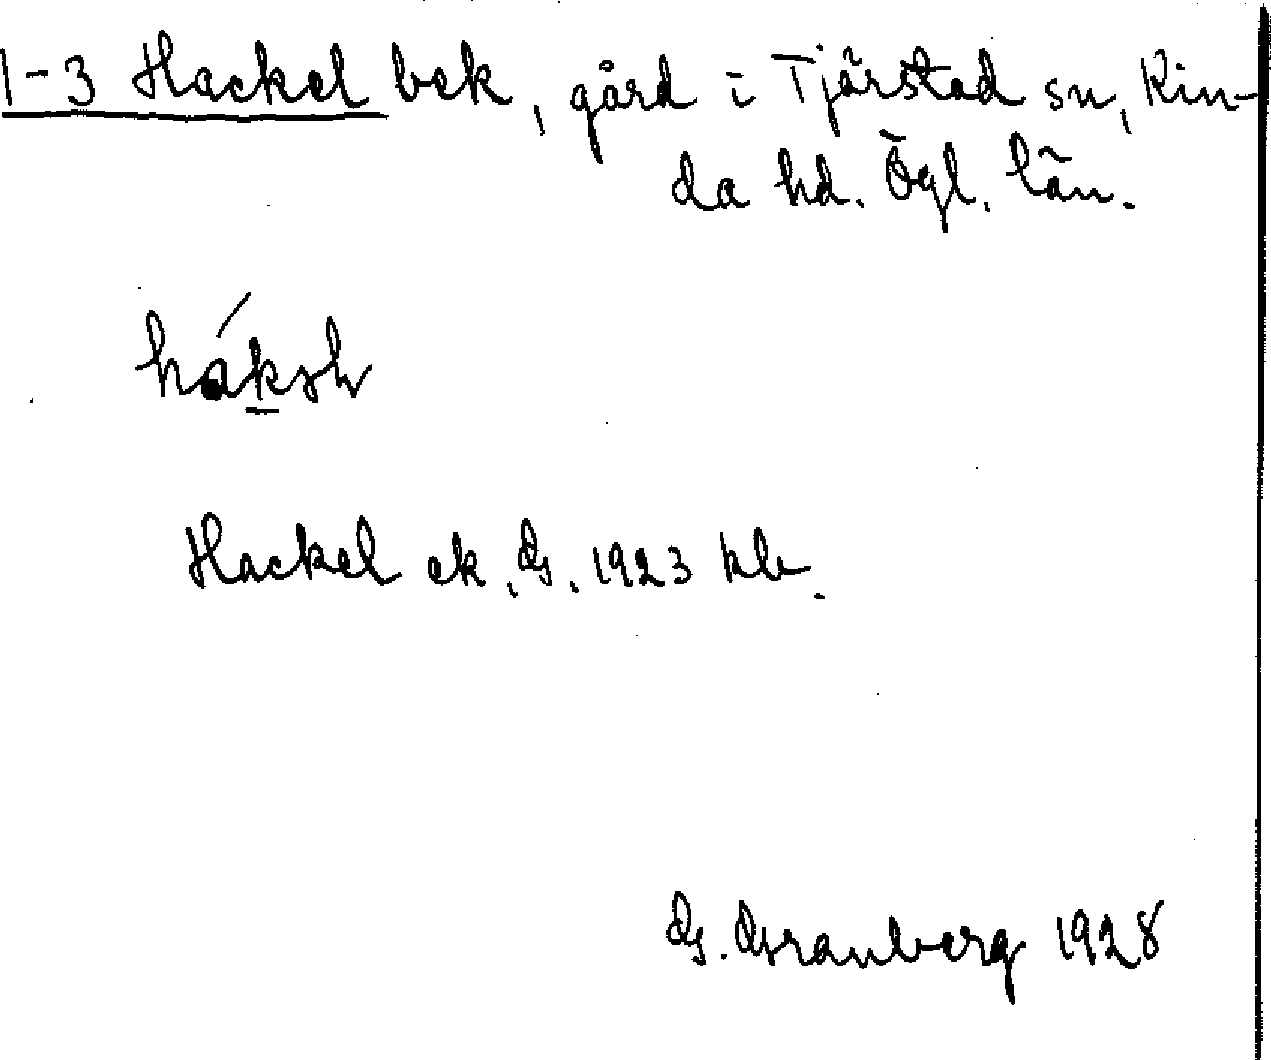 1-3 Hackel bek, gård i Tjärstad sn, Kin-
da hd. Ögl. län.
Hackel ek. G. 1923 kb.
G. Granberg 1928